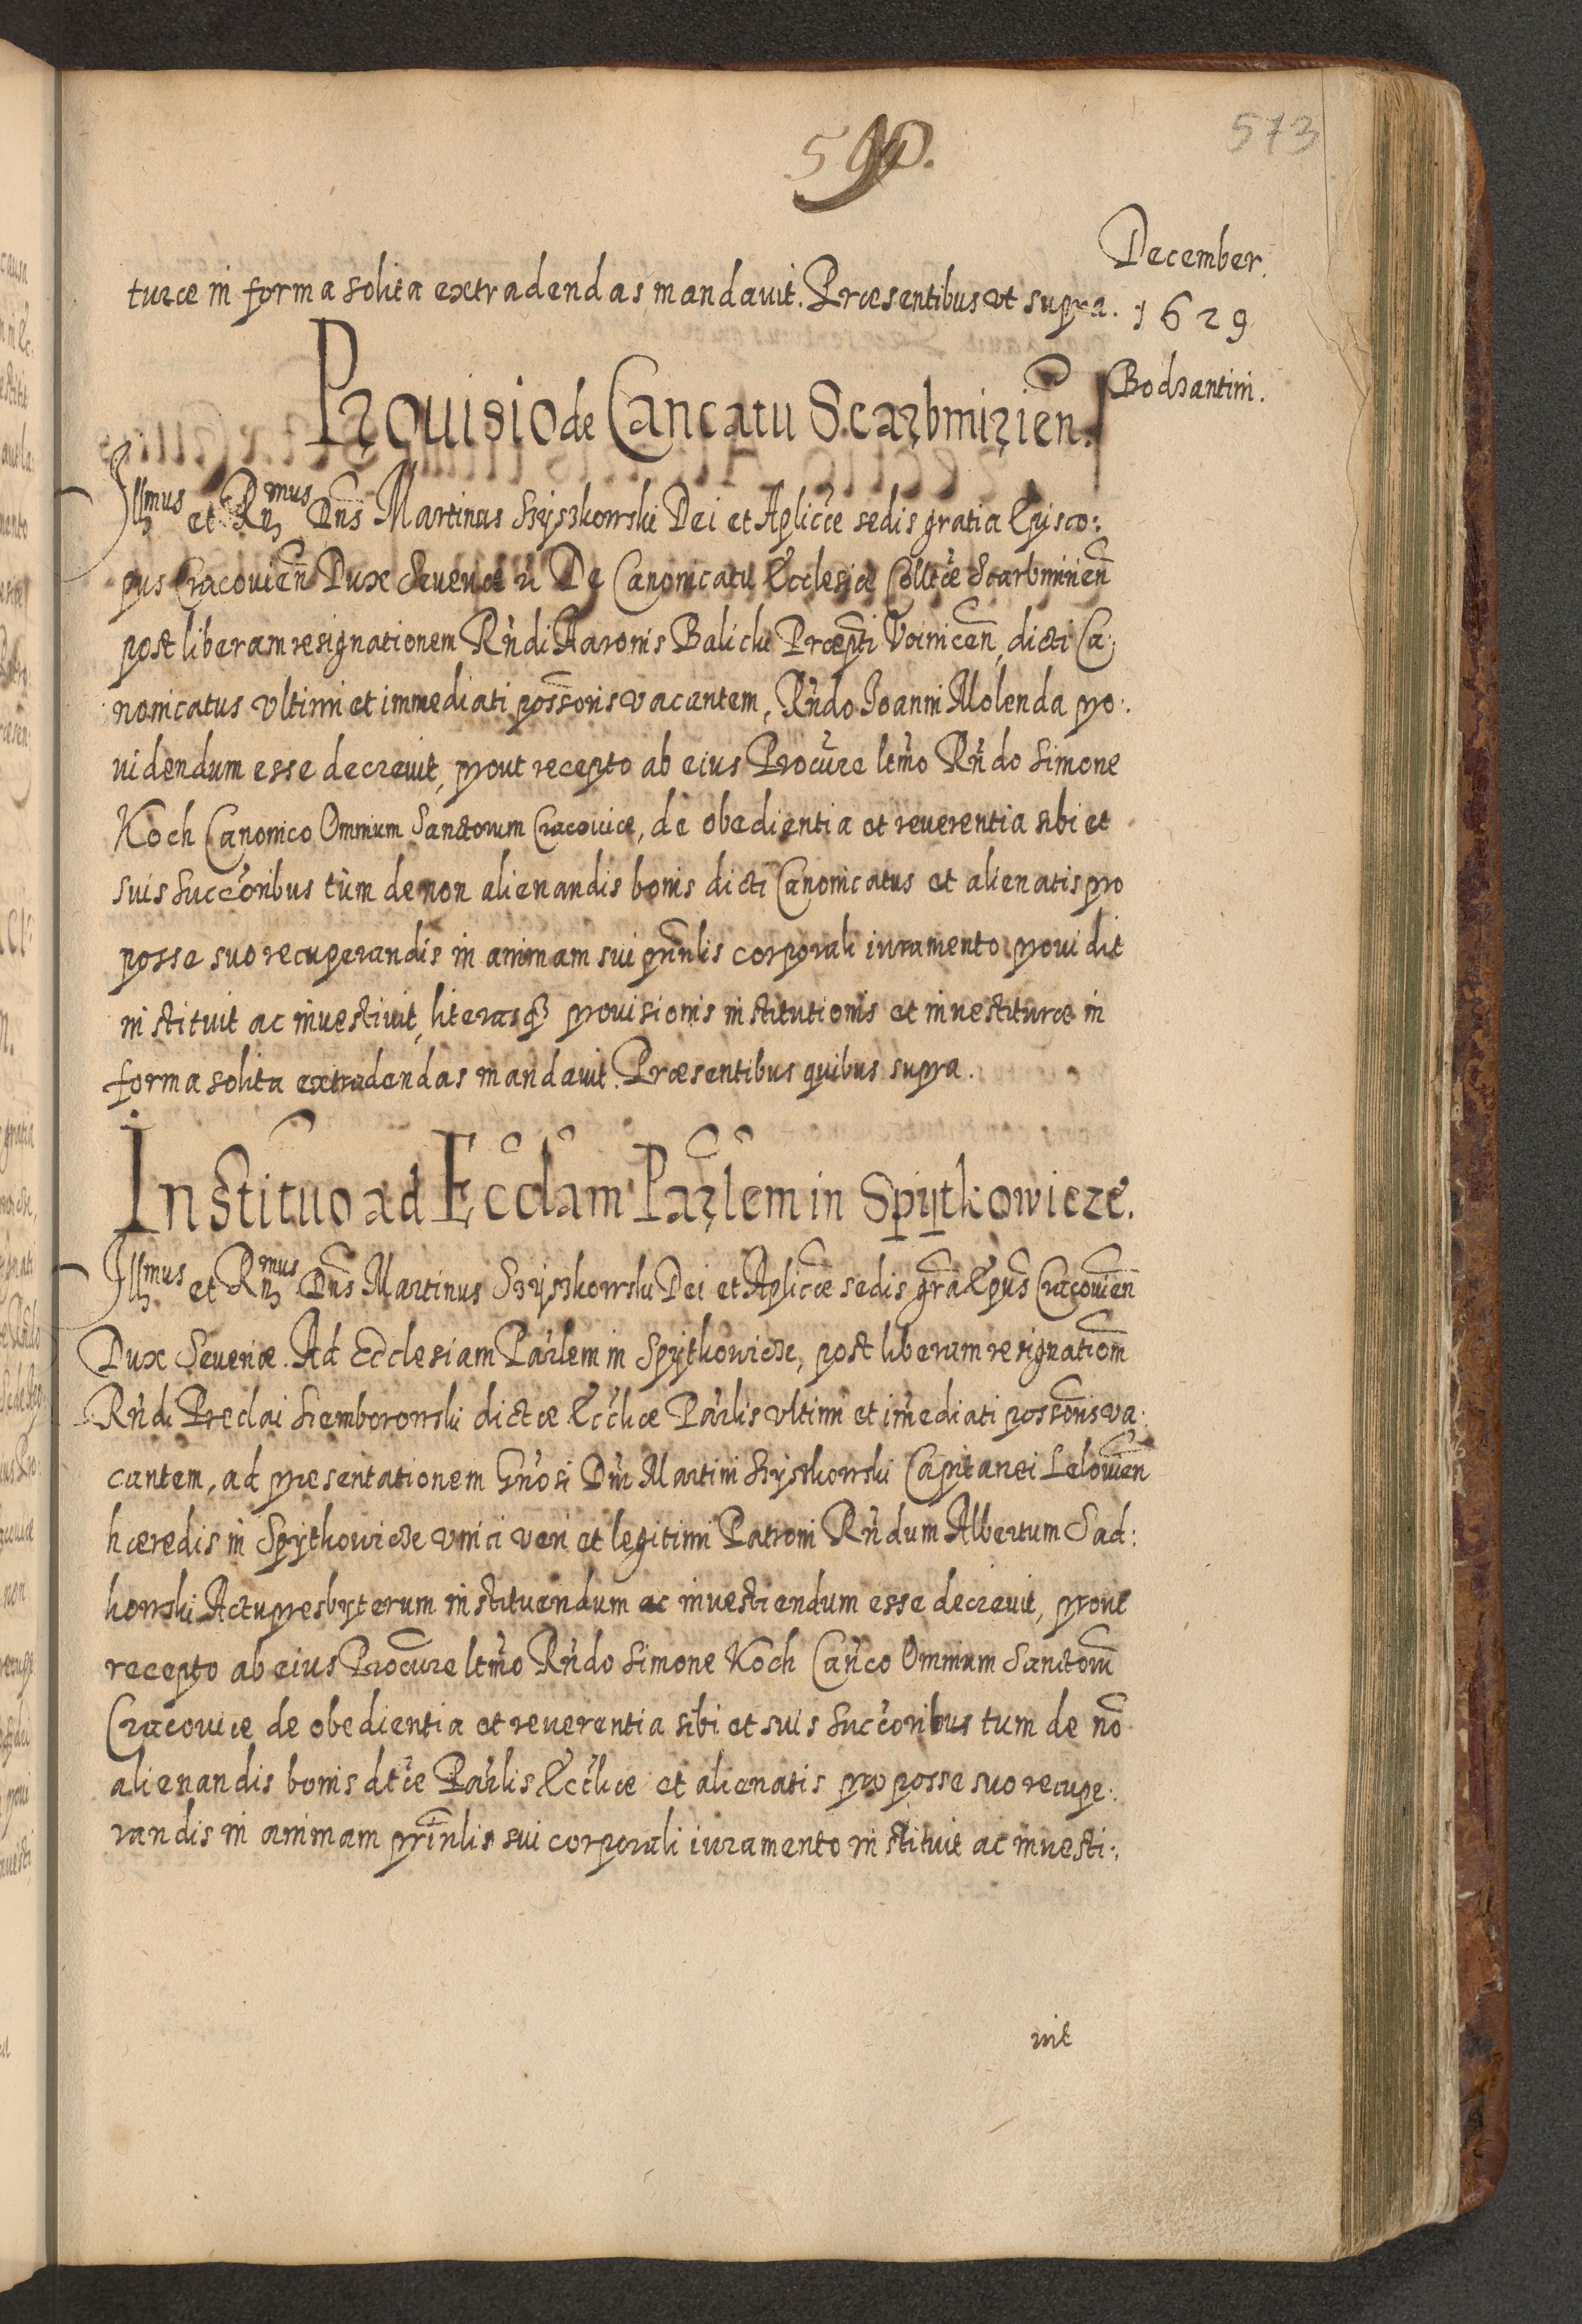 573
December.
turæ in forma solita extradendas mandauit. Præsentibus vt supra. 1629
Bodzantini.
Prouisio de Cancatu Scarbmirien̄.
Illmus et Rnmus Dn̄s Martinus Szyszkowski Dei et Aplicæ sedis gratia Episco:
pus Cracovien̄ Dux Severiæ De Canonicatu Ecclesiæ Colltæ Scarbmirien̄
post liberam resignationem Rn̄di Aaronis Balicki Præpti Voinicen̄, dicti Ca:
nonicatus vltimi et immediati posson̄is vacantem, Rn̄do Ioanni Molenda pro:
uidendum esse decreuit, prout recepto ab eius Procūre ltmo Rn̄do Simone
Koch Canonico Omnium Sanctorum Cracouiæ, de obedientia et reuerentia sibi et
suis succoribus tum de non alienandis bonis dicti Canonicatus et alienatis pro
posse suo recuperandis in animam sui prin̄lis corporali iuramento prouidit
instituit ac inuestiuit, literasq3 prouisionis institutionis et inuestituræ in
forma solita extradendas mandauit. Præsentibus quibus supra.
Institutio ad Ecclam Parlem in Spytkowicze.
Illmus et Rnmus Dn̄s Martinus Szyszkowski Dei et Aplicæ sedis grā Epus Cracouien̄
Dux Seueriæ. Ad Ecclesiam Parlem in Spytkowicze, post liberam resignatiom̄
Rn̄di Preclai Szemborowski dictæ Ecclicæ Parlis vltimi et im̄ediati possoris va:
cantem, ad presentationem Gn̄osi Dn̄i Martini Szyszkowski Capitanei Lelouien̄
hæredis in Spytkowicze vnici veri et legitimi Patroni Rn̄dum Albertum Sad:
kowski Actupresbyterum instituendum ac inuestiendum esse decreuit, prout
recepto ab eius Procūre ltmo Rn̄do Simone Koch Can̄co Omnium Sanctorū
Cracouiæ de obedientia et reuerentia sibi et suis succoribus tum de nō
alienandis bonis dtæ Parlis Eccliæ et alienatis pro posse suo recupe:
randis in animam prin̄lis sui corporali iuramento instituit ac inuesti:
uit